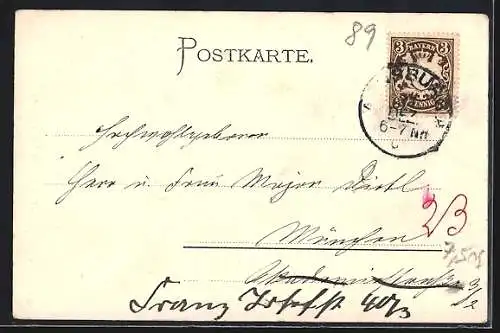 89
POSTKARTE.
3 BAYERN 3
PFENNIG
SBUR
DEZ
6-7 Nm
Hochwohlgeboren
Herr u. Frau Major Dietl
23
München
Akademiestraße
Franz Josefst